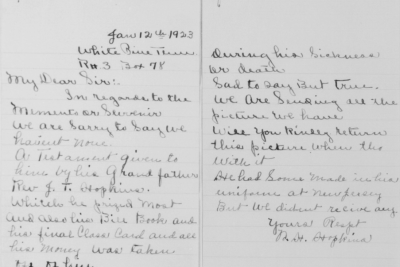 Jan 12th 1923
White Pine Tenn.
R# 3 Box 78
My Dear Sir:.
In regards to the
Memento or Suvenir
We are Sorry to Say we
havent none.
A Testament given to
him by his Grand father
Rev. J. F. Hopkins.
Which he prized Most
And also his Bill Book and
his final Class Card and all
his Money was taken
During his Sickness
Or death
Sad to Say But true.
We Are Sending all the
picture We have
Will you Kindly return
this picture when tho
With it
He had Some Made in his
uniform at New Jersey
But We didnt recive any
Yours Respt
Hopkins